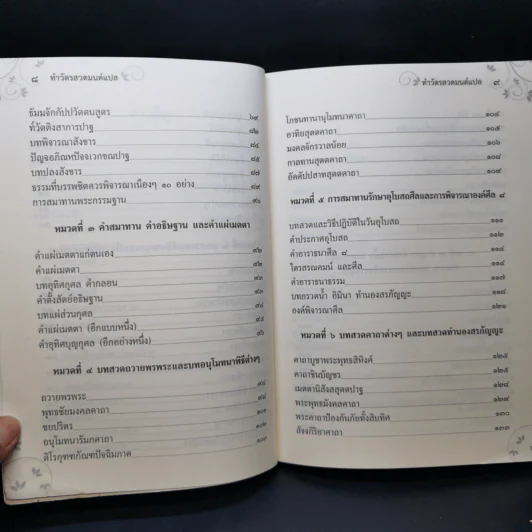 ๘ ทำวัตรสวดมนต์แปล
ธัมมจักกัปปวัตตนสูตร ๖๙
ทวัตติงสาการปาฐ ๘๒
บทพิจารณาสังขาร ๘๔
ปัญจอภิณหปัจจเวกขณปาฐ ๘๕
บทปลงสังขาร ๘๗
ธรรมที่บรรพชิตควรพิจารณาเนืองๆ ๑๐ อย่าง ๘๙
การสมาทานพระกรรมฐาน ๙๐
หมวดที่ ๓ คำสมาทาน คำอธิษฐาน และคำแผ่เมตตา
คำแผ่เมตตาแก่ตนเอง ๙๒
คำแผ่เมตตา ๙๒
บทอุทิศกุศล คำกลอน ๙๓
คำตั้งสัตย์อธิษฐาน ๙๓
บทแผ่ส่วนกุศล ๙๔
คำแผ่เมตตา (อีกแบบหนึ่ง) ๙๕
คำอุทิศบุญกุศล (อีกอย่างหนึ่ง) ๙๖
หมวดที่ ๔ บทสวดถวายพรพระและบทอนุโมทนาพิธีต่างๆ
ถวายพรพระ ๙๘
พุทธชัยมงคลคาถา
ชยปริตร ๑๐๒
อนุโมทนารัมภคาถา ๑๐๓
ติโรกุฑฑกัณฑปัจฉิมภาค
ทำวัตรสวดมนต์แปล ๙
โภชนทานานุโมทนาคาถา ๑๐๔
อาทิยสุตตคาถา ๑๐๕
มงคลจักรวาลน้อย ๑๐๖
กาลทานสุตตคาถา
อัคคัปปสาทสุตตคาถา
หมวดที่ ๕ การสมาทานรักษาอุโบสถศีลและการพิจารณาองค์ศีล ๘
บทสวดและวิธีปฏิบัติในวันอุโบสถ ๑๑๐
คำประกาศอุโบสถ
คำอาราธนาศีล ๘
ไตรสรณคมน์ และศีล
คำอาราธนาธรรม ๑๑๗
บทกรวดน้ำ อิมินา ทำนองสรภัญญะ ๑๑๘
องค์พิจารณาศีล
หมวดที่ ๖ บทสวดคาถาต่างๆ และบทสวดทำนองสรภัญญะ
คาถาบูชาพระพุทธสิหิงค์ ๑๒๕
คาถาชินบัญชร ๑๒๕
เมตตานิสังสสุตตปาฐ ๑๒๘
พระพุทธมังคลคาถา
พระคาถาป้องกันภัยทั้งสิบทิศ ๑๓๐
สัจจกิริยาคาถา ๑๓๓